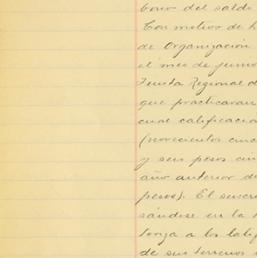 bono del saldo
Con motivo de h
de Organización
el mes de junio
Junta Regional d
que practicaran
cual calificacion
(novecientos cinc
y seis pesos cin
año anterior de
pesos). El suscri
sándise en la 
tonga a los
de sus terrenos